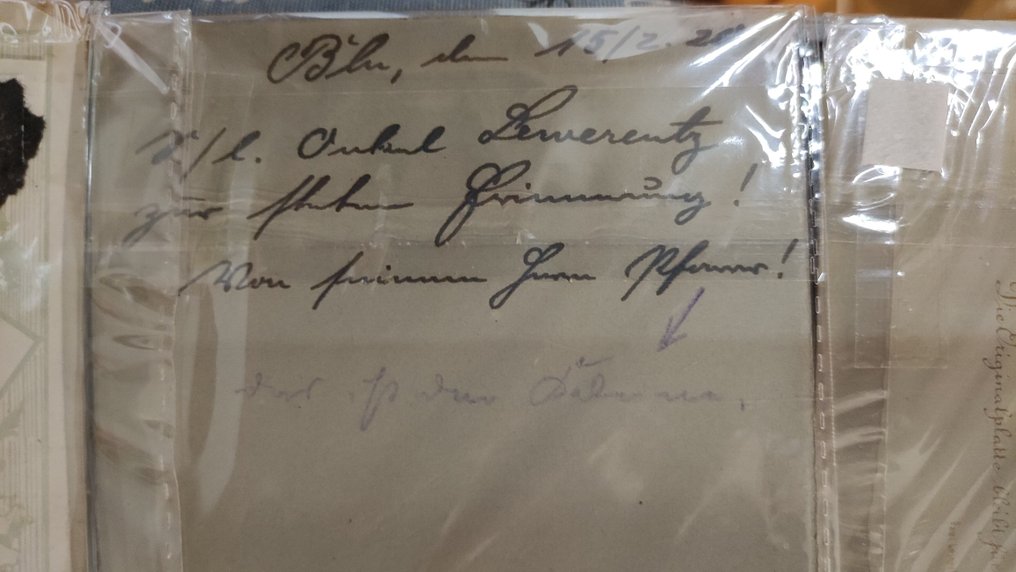 Bln, den 15/2. 20
s/l. Onkel Lewerentz
zur steten Erinnerung!
Von seinem Herrn Pfarrer!
das ist der
Die Originalplatte bleibt